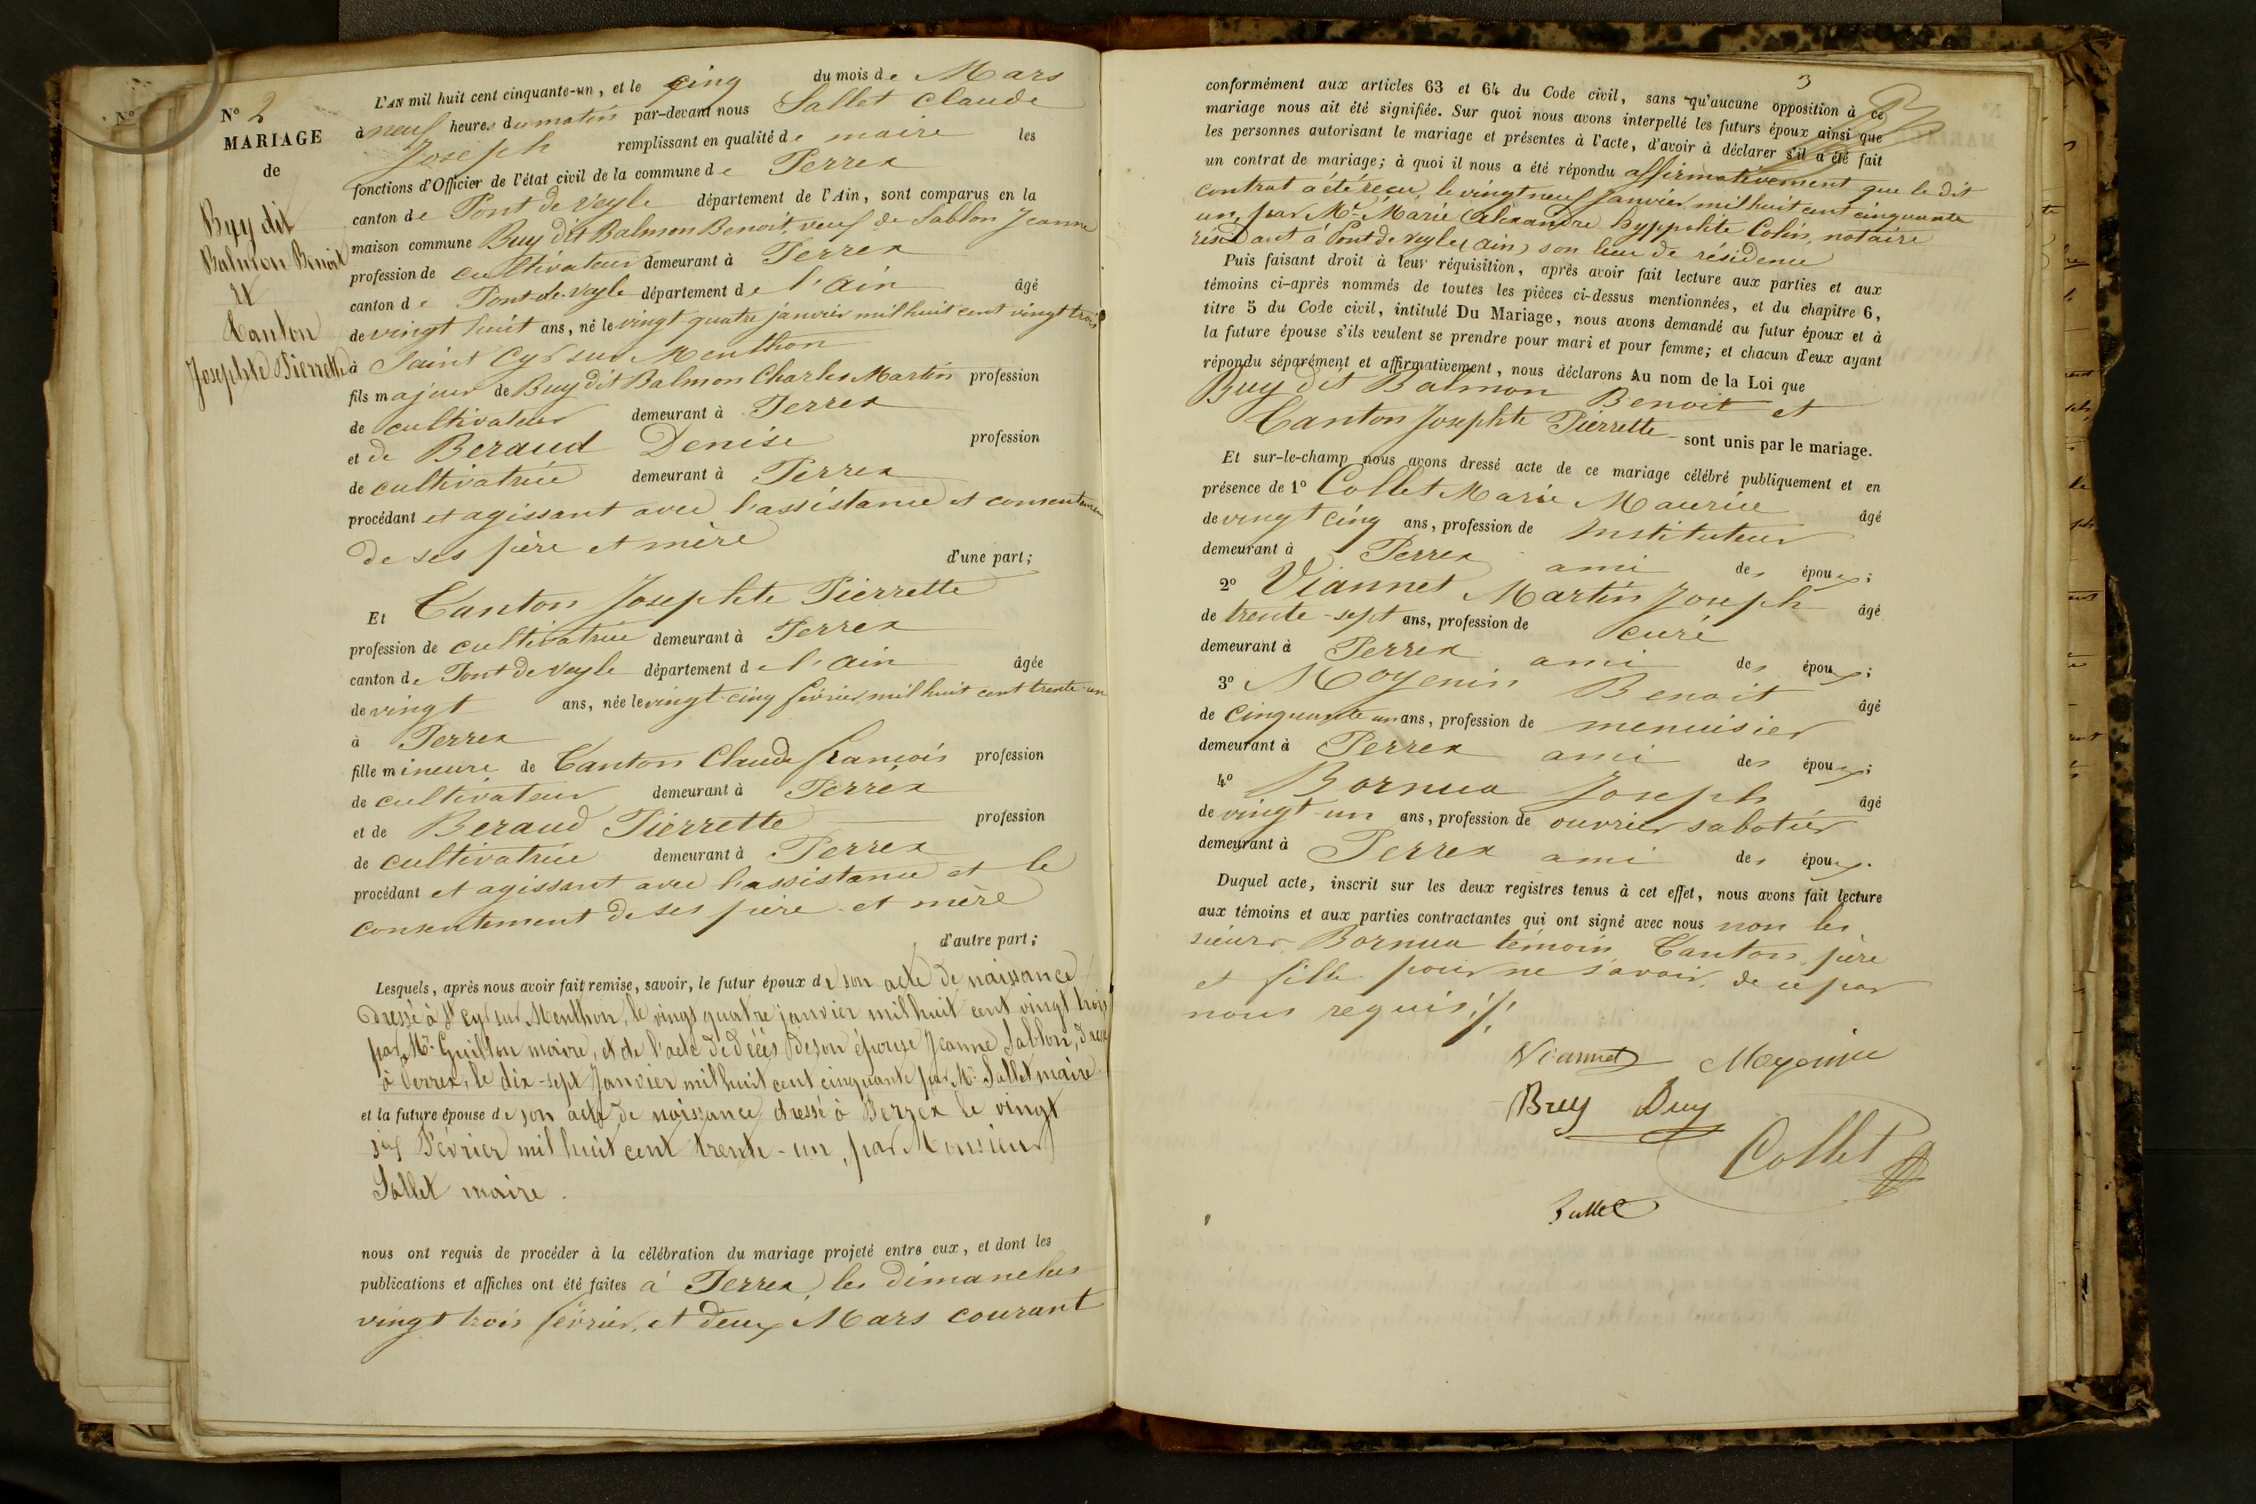 N°
N° 2
MARIAGE
de
Buy dit
Balmon Benoit
et
Canton
Josephte Pierrette
L'AN mil huit cent cinquante-un, et le cinq du mois de Mars
à neuf heures du matin par-devant nous Sallet Claude
Joseph remplissant en qualité de maire les
fonctions d'Officier de l'état civil de la commune de Perrex
canton de Pont de Veyle département de l'Ain, sont comparus en la
maison commune Buy dit Balmon Benoit, veuf de Sablon Jeanne
profession de cultivateur demeurant à Perrex
canton de Pont-de-Veyle département de l'Ain âgé
de vingt huit ans, né le vingt quatre janvier mil huit cent vingt trois
à Saint Cyr sur Menthon
fils majeur de Buy dit Balmon Charles Martin profession
de cultivateur demeurant à Perrex
et de Beraud Denise profession
de cultivatrice demeurant à Perrex
procédant et agissant avec l'assistance et consentement
de ses père et mère
d'une part;
Et Canton Josephte Pierrette
profession de cultivatrice demeurant à Perrex
canton de Pont de Veyle département de l'Ain âgée
de vingt ans, née le vingt-cinq février mil huit cent trente-un
à Perrex
fille mineure de Canton Claude françois profession
de cultivateur demeurant à Perrex
et de Beraud Pierrette profession
de cultivatrice demeurant à Perrex
procédant et agissant avec l'assistance et le
consentement de ses père et mère
d'autre part;
Lesquels, après nous avoir fait remise, savoir, le futur époux de son acte de naissance
dressé à St Cyr sur Menthon, le vingt quatre janvier mil huit cent vingt trois
par Mr Guillon maire, et de l'acte de décès de son épouse Jeanne Sablon,
à Perrex, le dix-sept Janvier mil huit cent cinquante par Mr Sallet maire
et la future épouse de son acte de naissance dressé à Perrex le vingt
six Février mil huit cent trente-un, par Monsieur
Sallet maire.
nous ont requis de procéder à la célébration du mariage projeté entre eux, et dont les
publications et affiches ont été faites à Perrex, les dimanches
vingt trois février, et deux Mars courant
3
conformément aux articles 63 et 64 du Code civil, sans qu'aucune opposition à ce
mariage nous ait été signifiée. Sur quoi nous avons interpellé les futurs époux ainsi que
les personnes autorisant le mariage et présentes à l'acte, d'avoir à déclarer s'il a été fait
un contrat de mariage; à quoi il nous a été répondu affirmativement que le dit
contrat a été reçu, le vingt neuf Janvier mil huit cent cinquante
un, par Me Marie Alexandre hyppolite Colin, notaire
résidant à Pont de Veyle (Ain) son lieu de résidence
Puis faisant droit à leur réquisition, après avoir fait lecture aux parties et aux
témoins ci-après nommés de toutes les pièces ci-dessus mentionnées, et du chapitre 6,
titre 5 du Code civil, intitulé Du Mariage, nous avons demandé au futur époux et à
la future épouse s'ils veulent se prendre pour mari et pour femme; et chacun d'eux ayant
répondu séparément et affirmativement, nous déclarons Au nom de la Loi que
Buy dit Balmon Benoit et
Canton Josephte Pierrette sont unis par le mariage.
Et sur-le-champ nous avons dressé acte de ce mariage célébré publiquement et en
présence de 1° Collet Marie Maurice âgé
de vingt cinq ans, profession de Instituteur
demeurant à Perrex ami des époux;
2° Viannet Martin Joseph âgé
de trente-sept ans, profession de curé
demeurant à Perrex ami des époux;
3° Moyenin Benoit âgé
de cinquante un ans, profession de menuisier
demeurant à Perrex ami des époux;
4° Bornua Joseph âgé
de vingt-un ans, profession de ouvrier sabotier
demeurant à Perrex ami des époux.
Duquel acte, inscrit sur les deux registres tenus à cet effet, nous avons fait lecture
aux témoins et aux parties contractantes qui ont signé avec nous non les
sieurs Bornua témoin, Canton, père
et fille pour ne savoir, de ce par
nous requis./.
Viannet Moyenin
Buy Buy
Collet
Sallet